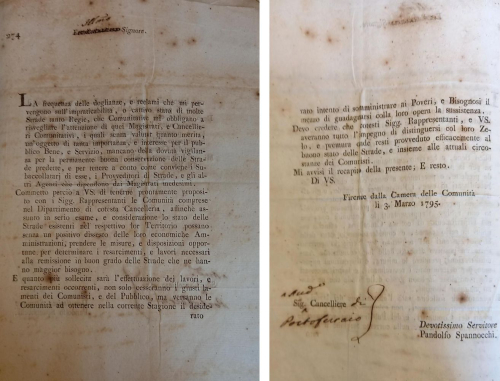 274
Signore.
LA frequenza delle doglianze, e reclami che mi per-
vengono sull'impraticabilità, o cattivo stato di molte
Strade tanto Regie, che Comunitative mi obbligano a
risvegliare l'attenzione di quei Magistrati, e Cancellie-
ri Comunitativi, i quali senza valutar quanto merita,
un'oggetto di tanta importanza, e interesse per il pub-
blico Bene, e Servizio, mancano della dovuta vigilan-
za per la permanente buona conservazione delle Stra-
de predette, e per tenere a conto come conviene i Su-
baccollatari di esse, i Provveditori di Strade, e gli al-
tri Agenti che dipendono dai Magistrati medesimi.
Commetto perciò a VS. di sentire prontamente proposi-
to con i Sigg. Rappresentanti le Comunità comprese
nel Dipartimento di cotesta Cancelleria, affinchè po-
nanto in serio esame, e considerazione lo stato delle
Strade esistenti nel respettivo lor Territorio possano
senza un positivo dissesto delle loro economiche Am-
ministrazioni, prendere le misure, e disposizioni oppor-
tune per determinare i resarcimenti, e lavori necessarj
alla remissione in buon grado delle Strade che ne han-
no maggior bisogno.
E quanto più sollecita sarà l'effettuazione dei lavori, e
resarcimenti occorrenti, non solo cesseranno i giusti la-
menti dei Comunisti, e del Pubblico, ma verranno le
Comunità ad ottenere nella corrente Stagione il deside-
rato
rato intento di somministrare ai Poveri, e Bisognosi il
mezzo di guadagnarsi colla loro opera la sussistenza.
Devo credere che cotesti Sigg. Rappresentanti, e VS.
averanno tutto l'impegno di distinguersi col loro ze-
lo, e premura onde resti provveduto efficacemente al
buono stato delle Strade, e insieme alle attuali circo-
stanze dei Comunisti.
Mi avvisi il recapito della presente; E resto.
Di VS.
Firenze dalla Camera delle Comunità
li 3. Marzo 1795.
Sig. Cancelliere di
Portoferraio
Devotissimo Servitore
Pandolfo Spannocchi.